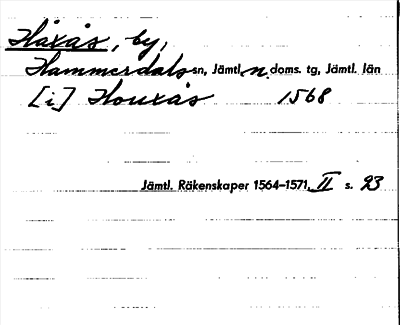 Håxås, by,
Hammerdals sn, Jämtl. n. doms. tg, Jämtl. län
[i] Houxås 1568
Jämtl. Räkenskaper 1564–1571, II s. 23